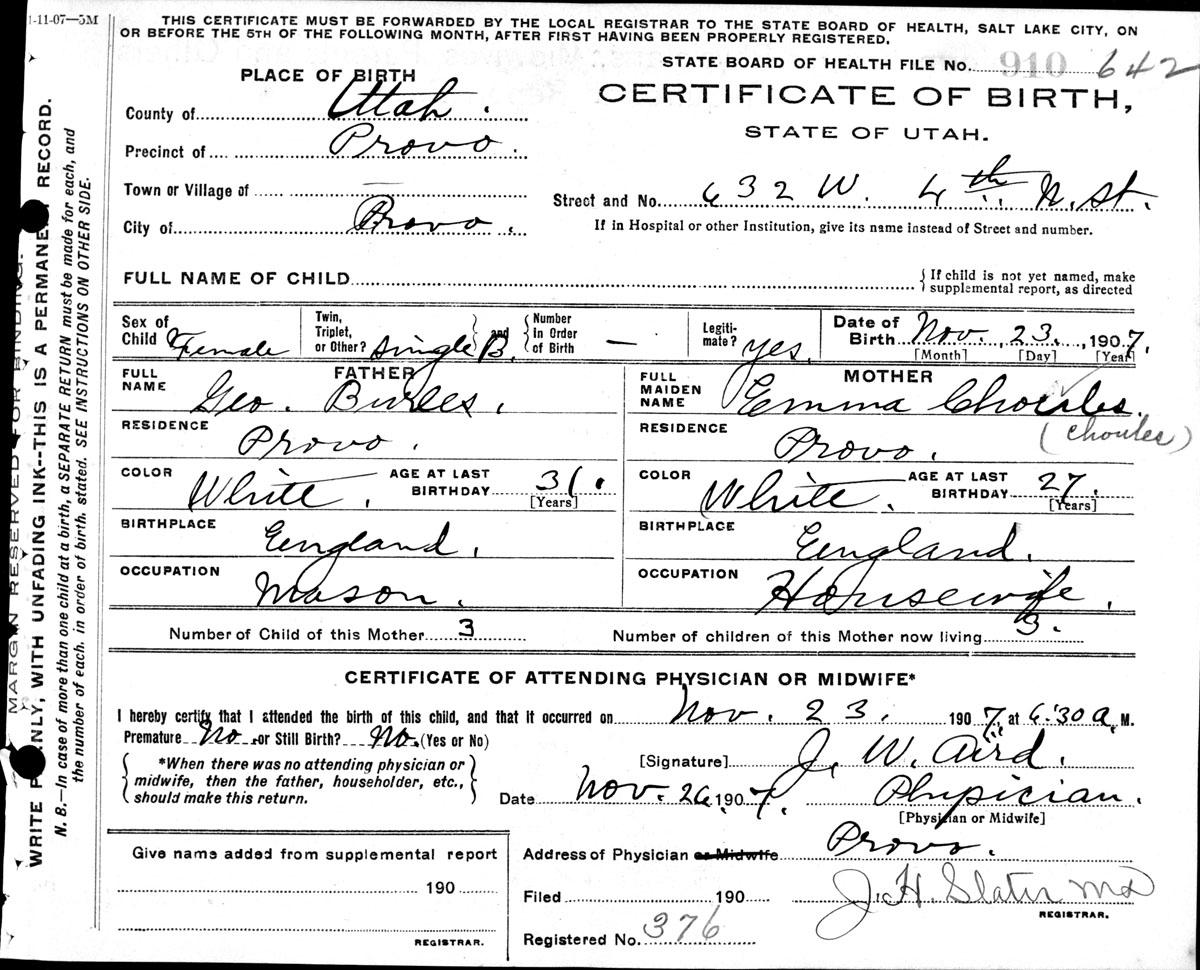 1-11-07—5M
THIS CERTIFICATE MUST BE FORWARDED BY THE LOCAL REGISTRAR TO THE STATE BOARD OF HEALTH, SALT LAKE CITY, ON
OR BEFORE THE 5TH OF THE FOLLOWING MONTH, AFTER FIRST HAVING BEEN PROPERLY REGISTERED.
STATE BOARD OF HEALTH FILE No. 910 642
PLACE OF BIRTH
CERTIFICATE OF BIRTH,
STATE OF UTAH.
County of Utah.
Precinct of Provo.
Town or Village of —
City of Provo.
Street and No. 632 W. 4th N. St.
If in Hospital or other Institution, give its name instead of Street and number.
FULL NAME OF CHILD
{ If child is not yet named, make
supplemental report, as directed
Sex of Child Female
Twin, Triplet, or Other? Single B. and { Number in Order of Birth —
Legiti-mate? yes.
Date of Birth Nov. 23., 1907.
[Month] [Day] [Year]
FATHER
FULL NAME Geo. Birees.
RESIDENCE Provo.
COLOR White. AGE AT LAST BIRTHDAY 31. [Years]
BIRTHPLACE England.
OCCUPATION Mason.
MOTHER
FULL MAIDEN NAME Emma Choules.
(Choules)
RESIDENCE Provo.
COLOR White. AGE AT LAST BIRTHDAY 27. [Years]
BIRTHPLACE England.
OCCUPATION Housewife.
Number of Child of this Mother 3
Number of children of this Mother now living 3.
CERTIFICATE OF ATTENDING PHYSICIAN OR MIDWIFE*
I hereby certify that I attended the birth of this child, and that it occurred on Nov. 23. 1907, at 6:30 a. M.
Premature No. or Still Birth? No. (Yes or No)
{ *When there was no attending physician or
midwife, then the father, householder, etc.,
should make this return. }
[Signature] J. W. Aird.
Date Nov. 26. 1907. Physician.
[Physician or Midwife]
Address of Physician or Midwife Provo.
Filed 190 J. H. Slater MD
REGISTRAR.
Registered No. 376
Give name added from supplemental report
190
REGISTRAR.
MARGIN RESERVED FOR BINDING.
WRITE PLAINLY, WITH UNFADING INK--THIS IS A PERMANENT RECORD.
N. B.—In case of more than one child at a birth, a SEPARATE RETURN must be made for each, and
the number of each, in order of birth, stated. SEE INSTRUCTIONS ON OTHER SIDE.